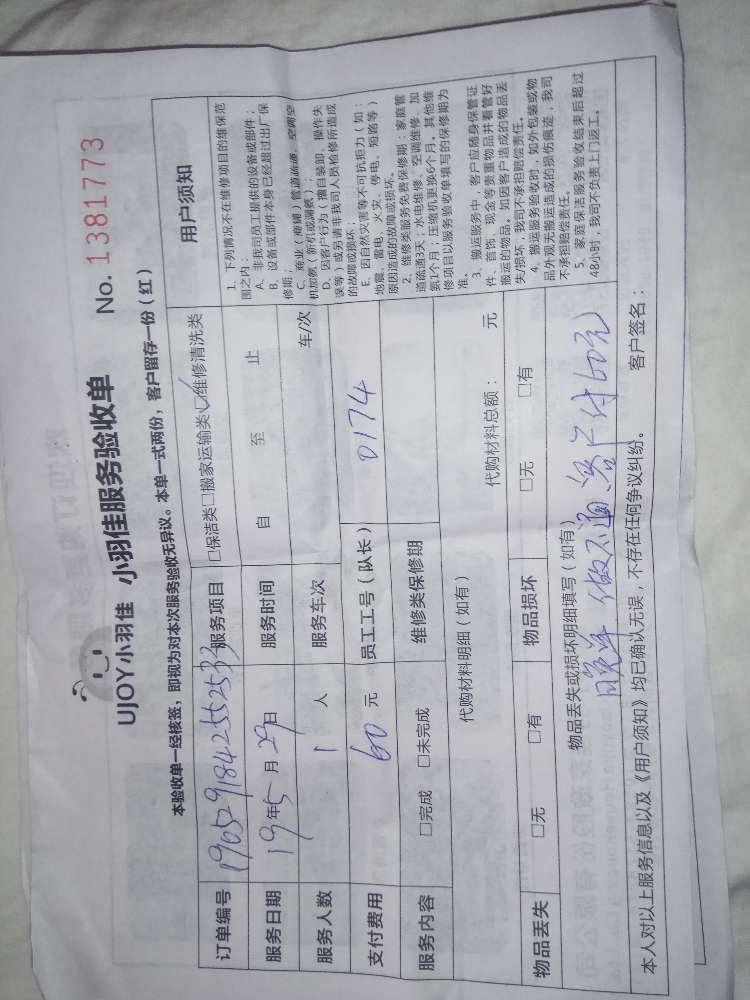 UJOY小羽佳 小羽佳服务验收单 No. 1381773
本验收单一经核签，即视为对本次服务验收无异议。本单一式两份，客户留存一份（红）
订单编号 1905291842552533 服务项目 □保洁类□搬家运输类□维修清洗类
服务日期 19年5月29日 服务时间 自 至 止
服务人数 1 人 服务车次 车/次
支付费用 60 元 员工工号（队长） 0174
服务内容 □完成 □未完成 维修类保修期
代购材料明细（如有） 代购材料总额： 元
物品丢失 □无 □有 物品损坏 □无 □有
物品丢失或损坏明细填写（如有）
做不通 客户付60元
本人对以上服务信息以及《用户须知》均已确认无误，不存在任何争议纠纷。 客户签名：
用户须知
1. 下列情况不在维修项目的维保范
围之内：
A. 非我司员工提供的设备或部件；
B. 设备或部件本身已经超过出厂保
修期；
C. 商业（商铺）管道疏通、空调空
机加氨（新机或漏氨）；
D. 因客户行为（擅自装卸、操作失
误等）或另请非我司人员检修所造成
的故障或损坏；
E. 因自然灾害等不可抗拒力（如：
地震、雷电、火灾、停电、短路等）
原因造成的故障或损坏。
2. 维修类服务免费保修期：家庭管
道疏通3天；水电维修、空调维修、加
氨1个月；压缩机更换6个月。其他维
修项目以服务验收单填写的保修期为
准。
3. 搬运服务中，客户应随身保管证
件、首饰、现金等贵重物品并看管好
搬运的物品。如因客户造成的物品丢
失/损坏，我司不承担赔偿责任。
4. 搬运服务验收时，如外包装或物
品外观无搬运造成的损伤痕迹，我司
不承担赔偿责任。
5. 家庭保洁服务验收结束后超过
48小时，我司不负责上门返工。